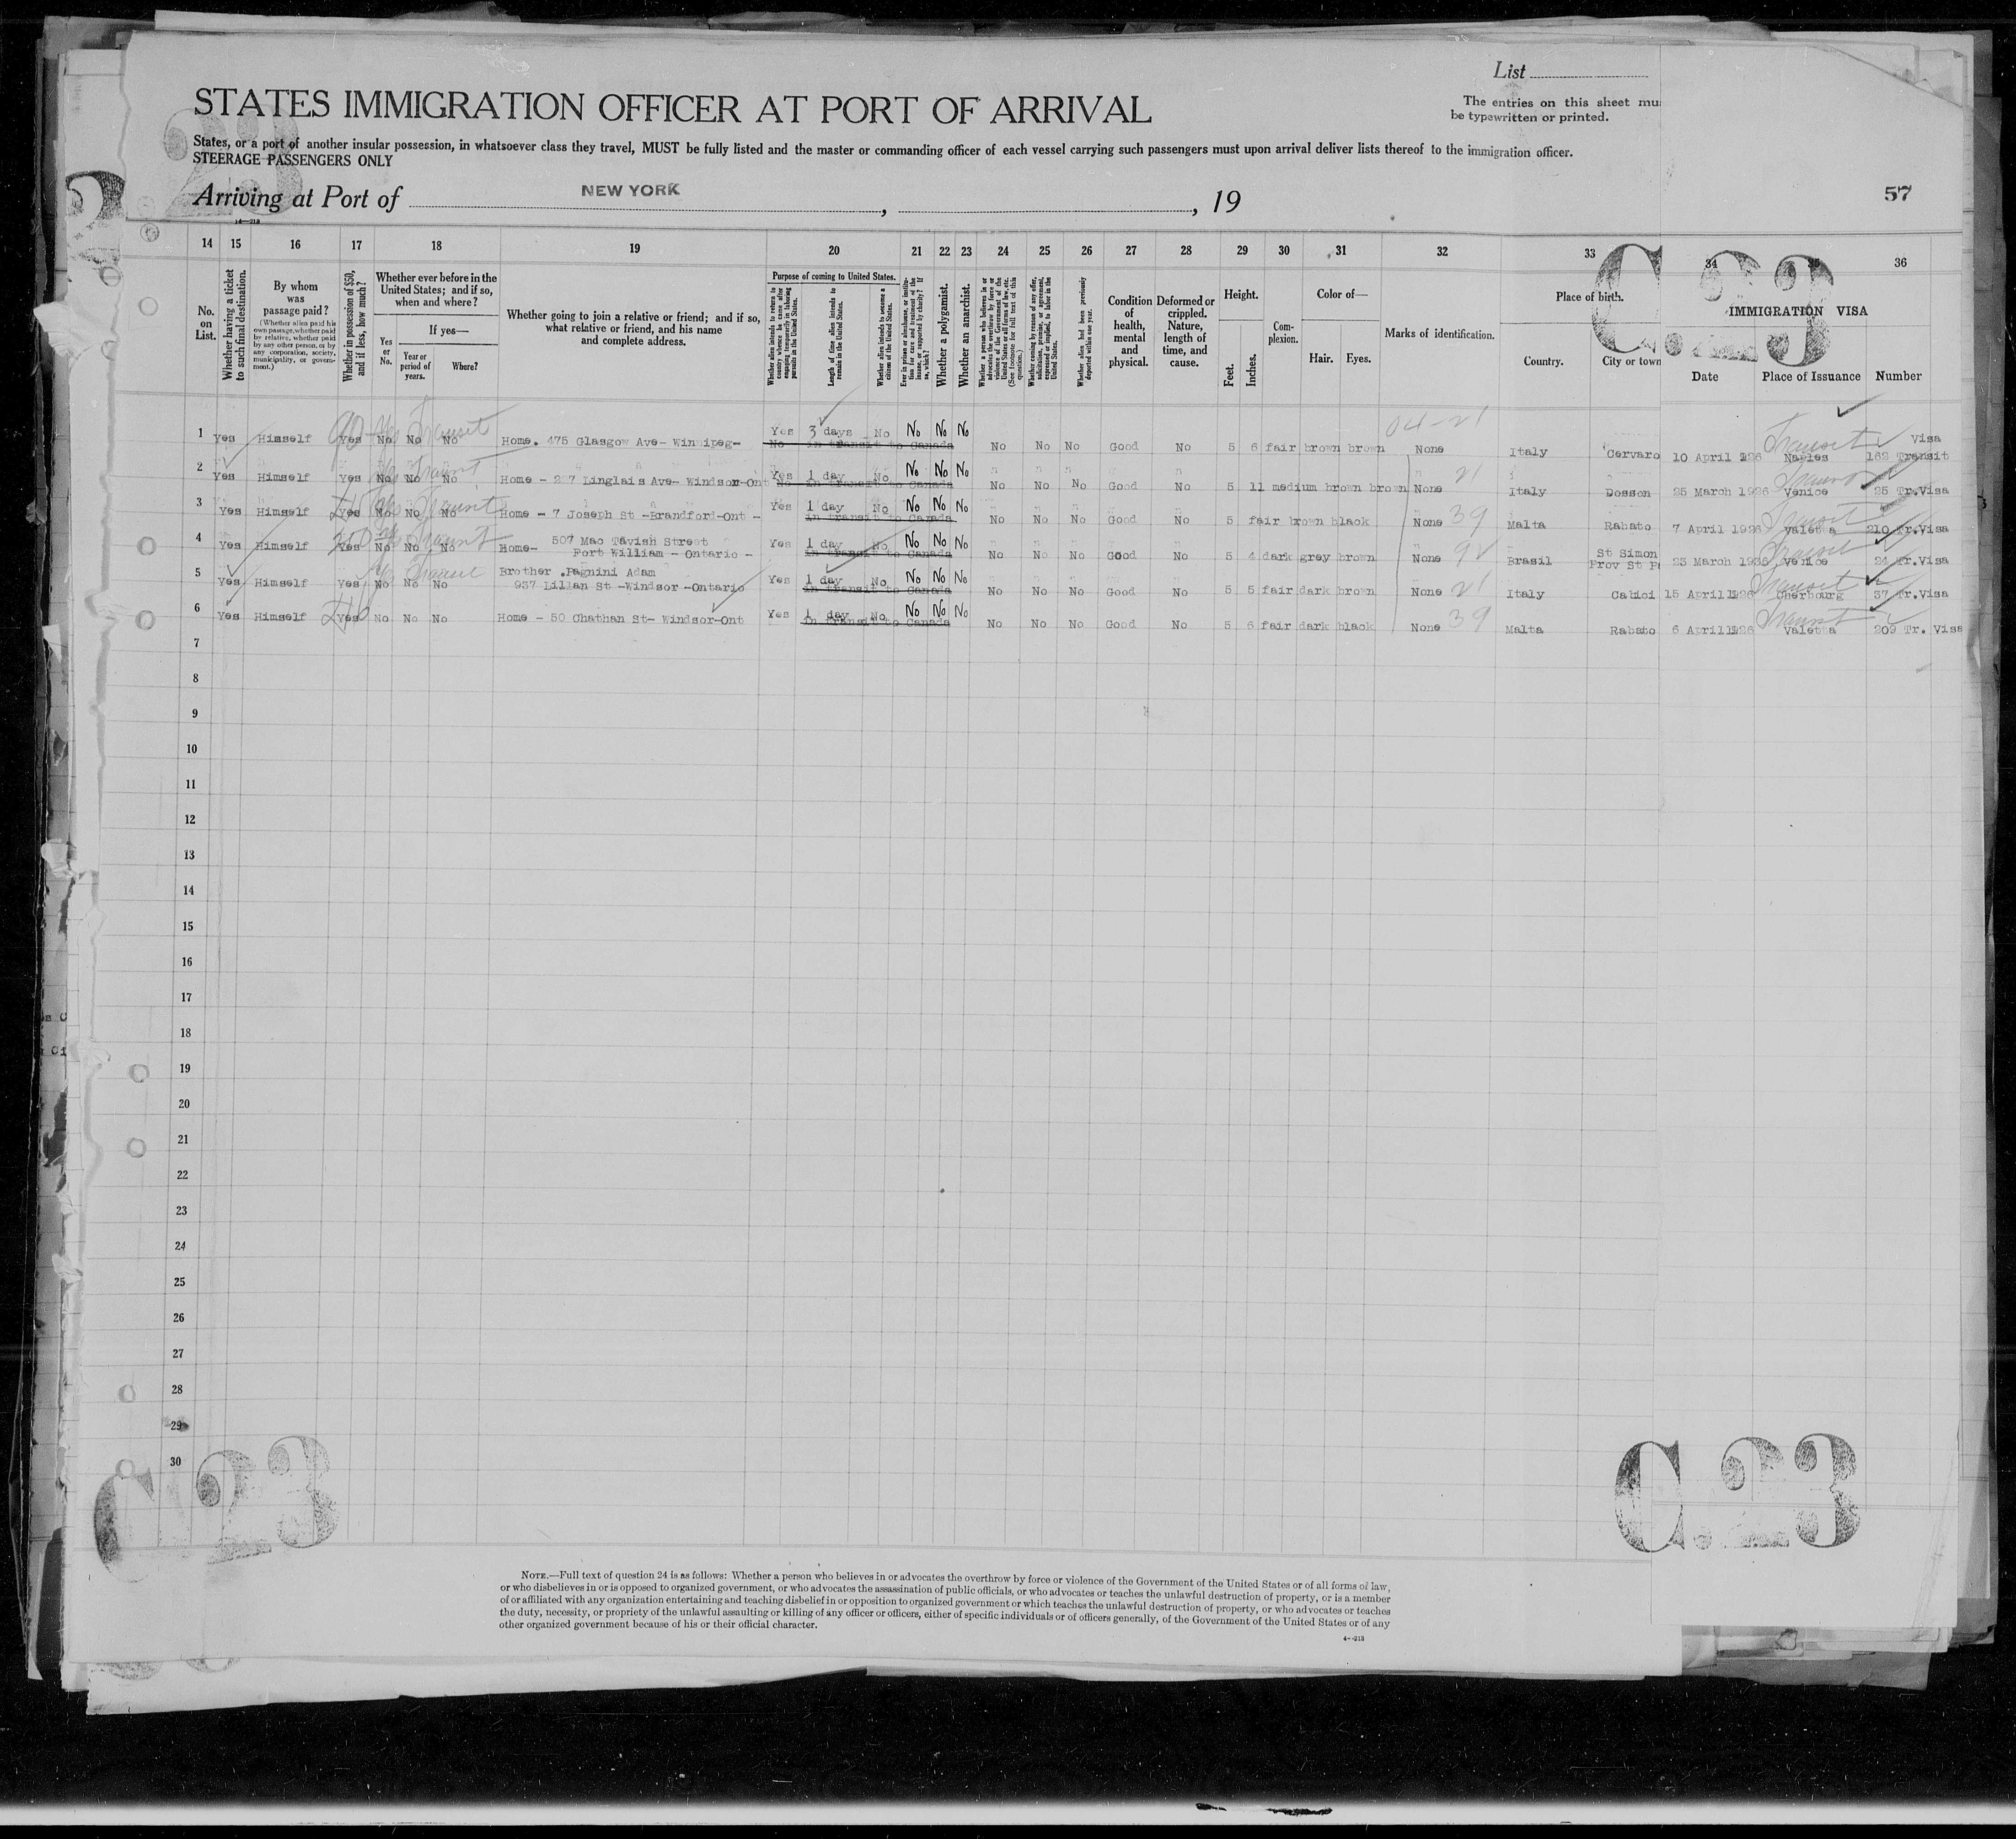 List
The entries on this sheet mu
be typewritten or printed.
STATES IMMIGRATION OFFICER AT PORT OF ARRIVAL
States, or a port of another insular possession, in whatsoever class they travel, MUST be fully listed and the master or commanding officer of each vessel carrying such passengers must upon arrival deliver lists thereof to the immigration officer.
STEERAGE PASSENGERS ONLY
Arriving at Port of NEW YORK , , 19
57
14—213
C.23
14 15 16 17 18 19 20 21 22 23 24 25 26 27 28 29 30 31 32 33 34 35 36
No. on List.
Whether having a ticket to such final destination.
By whom was passage paid?
(Whether alien paid his own passage, whether paid by relative, whether paid by any other person, or by any corporation, society, municipality, or government.)
Whether in possession of $50, and if less, how much?
Whether ever before in the United States; and if so, when and where?
Yes or No.
If yes—
Year or period of years.
Where?
Whether going to join a relative or friend; and if so, what relative or friend, and his name and complete address.
Purpose of coming to United States.
Whether alien intends to return to country whence he came after engaging temporarily in laboring pursuits in the United States.
Length of time alien intends to remain in the United States.
Whether alien intends to become a citizen of the United States.
Ever in prison or almshouse, or institution for care and treatment of the insane, or supported by charity? If so, which?
Whether a polygamist.
Whether an anarchist.
Whether a person who believes in or advocates the overthrow by force or violence of the Government of the United States or all forms of law, etc. (See footnote for full text of this question.)
Whether coming by reason of any offer, solicitation, promise, or agreement, expressed or implied, to labor in the United States.
Whether alien had been previously deported within one year.
Condition of health, mental and physical.
Deformed or crippled. Nature, length of time, and cause.
Height.
Feet.
Inches.
Complexion.
Color of—
Hair. Eyes.
Marks of identification.
Place of birth.
Country.
City or town
IMMIGRATION VISA
Date
Place of Issuance
Number
1 Yes Himself Yes No No No Home. 475 Glasgow Ave- Winnipeg- Yes 3 days No No No No No No No Good No 5 6 fair brown brown None Italy Cervaro 10 April 1926 Naples 162 Transit Visa
No in transit to Canada
90 Transit 04-21 Transit
2 Yes Himself Yes No No No Home - 2 7 Langlais Ave- Windsor-Ont Yes 1 day No No No No No No No Good No 5 11 medium brown brown None 21 Italy Dosson 25 March 1926 Venice 25 Tr.Visa
No in transit to Canada
Transit Transit
3 Yes Himself Yes No No No Home - 7 Joseph St -Brandford-Ont - Yes 1 day No No No No No No No Good No 5 fair brown black None 39 Malta Rabato 7 April 1926 Valetta 210 Tr.Visa
in transit to Canada
Transit Transit
4 Yes Himself Yes No No No Home- 507 Mac Tavish Street
Fort William - Ontario - Yes 1 day No No No No No No No Good No 5 4 dark grey brown None Brasil St Simon
Prov St P 23 March 1926 Venice 24 Tr.Visa
in transit to Canada
Transit Transit
5 Yes Himself Yes No No No Brother .Pagnini Adam
937 Lillan St -Windsor -Ontario Yes 1 day No No No No No No No Good No 5 5 fair dark brown None 21 Italy 15 April 1926 Cherbourg 37 Tr.Visa
in transit to Canada
Transit Transit
6 Yes Himself Yes No No No Home - 50 Chathan St- Windsor-Ont Yes 1 day No No No No No No No Good No 5 6 fair dark black None 39 Malta Rabato 6 April 1926 Valetta 209 Tr. Visa
in transit to Canada
Transit
7
8
9
10
11
12
13
14
15
16
17
18
19
20
21
22
23
24
25
26
27
28
29
30
C 23
C.23
NOTE.—Full text of question 24 is as follows: Whether a person who believes in or advocates the overthrow by force or violence of the Government of the United States or of all forms of law,
or who disbelieves in or is opposed to organized government, or who advocates the assassination of public officials, or who advocates or teaches the unlawful destruction of property, or is a member
of or affiliated with any organization entertaining and teaching disbelief in or opposition to organized government or which teaches the unlawful destruction of property, or who advocates or teaches
the duty, necessity, or propriety of the unlawful assaulting or killing of any officer or officers, either of specific individuals or of officers generally, of the Government of the United States or of any
other organized government because of his or their official character.
4--213